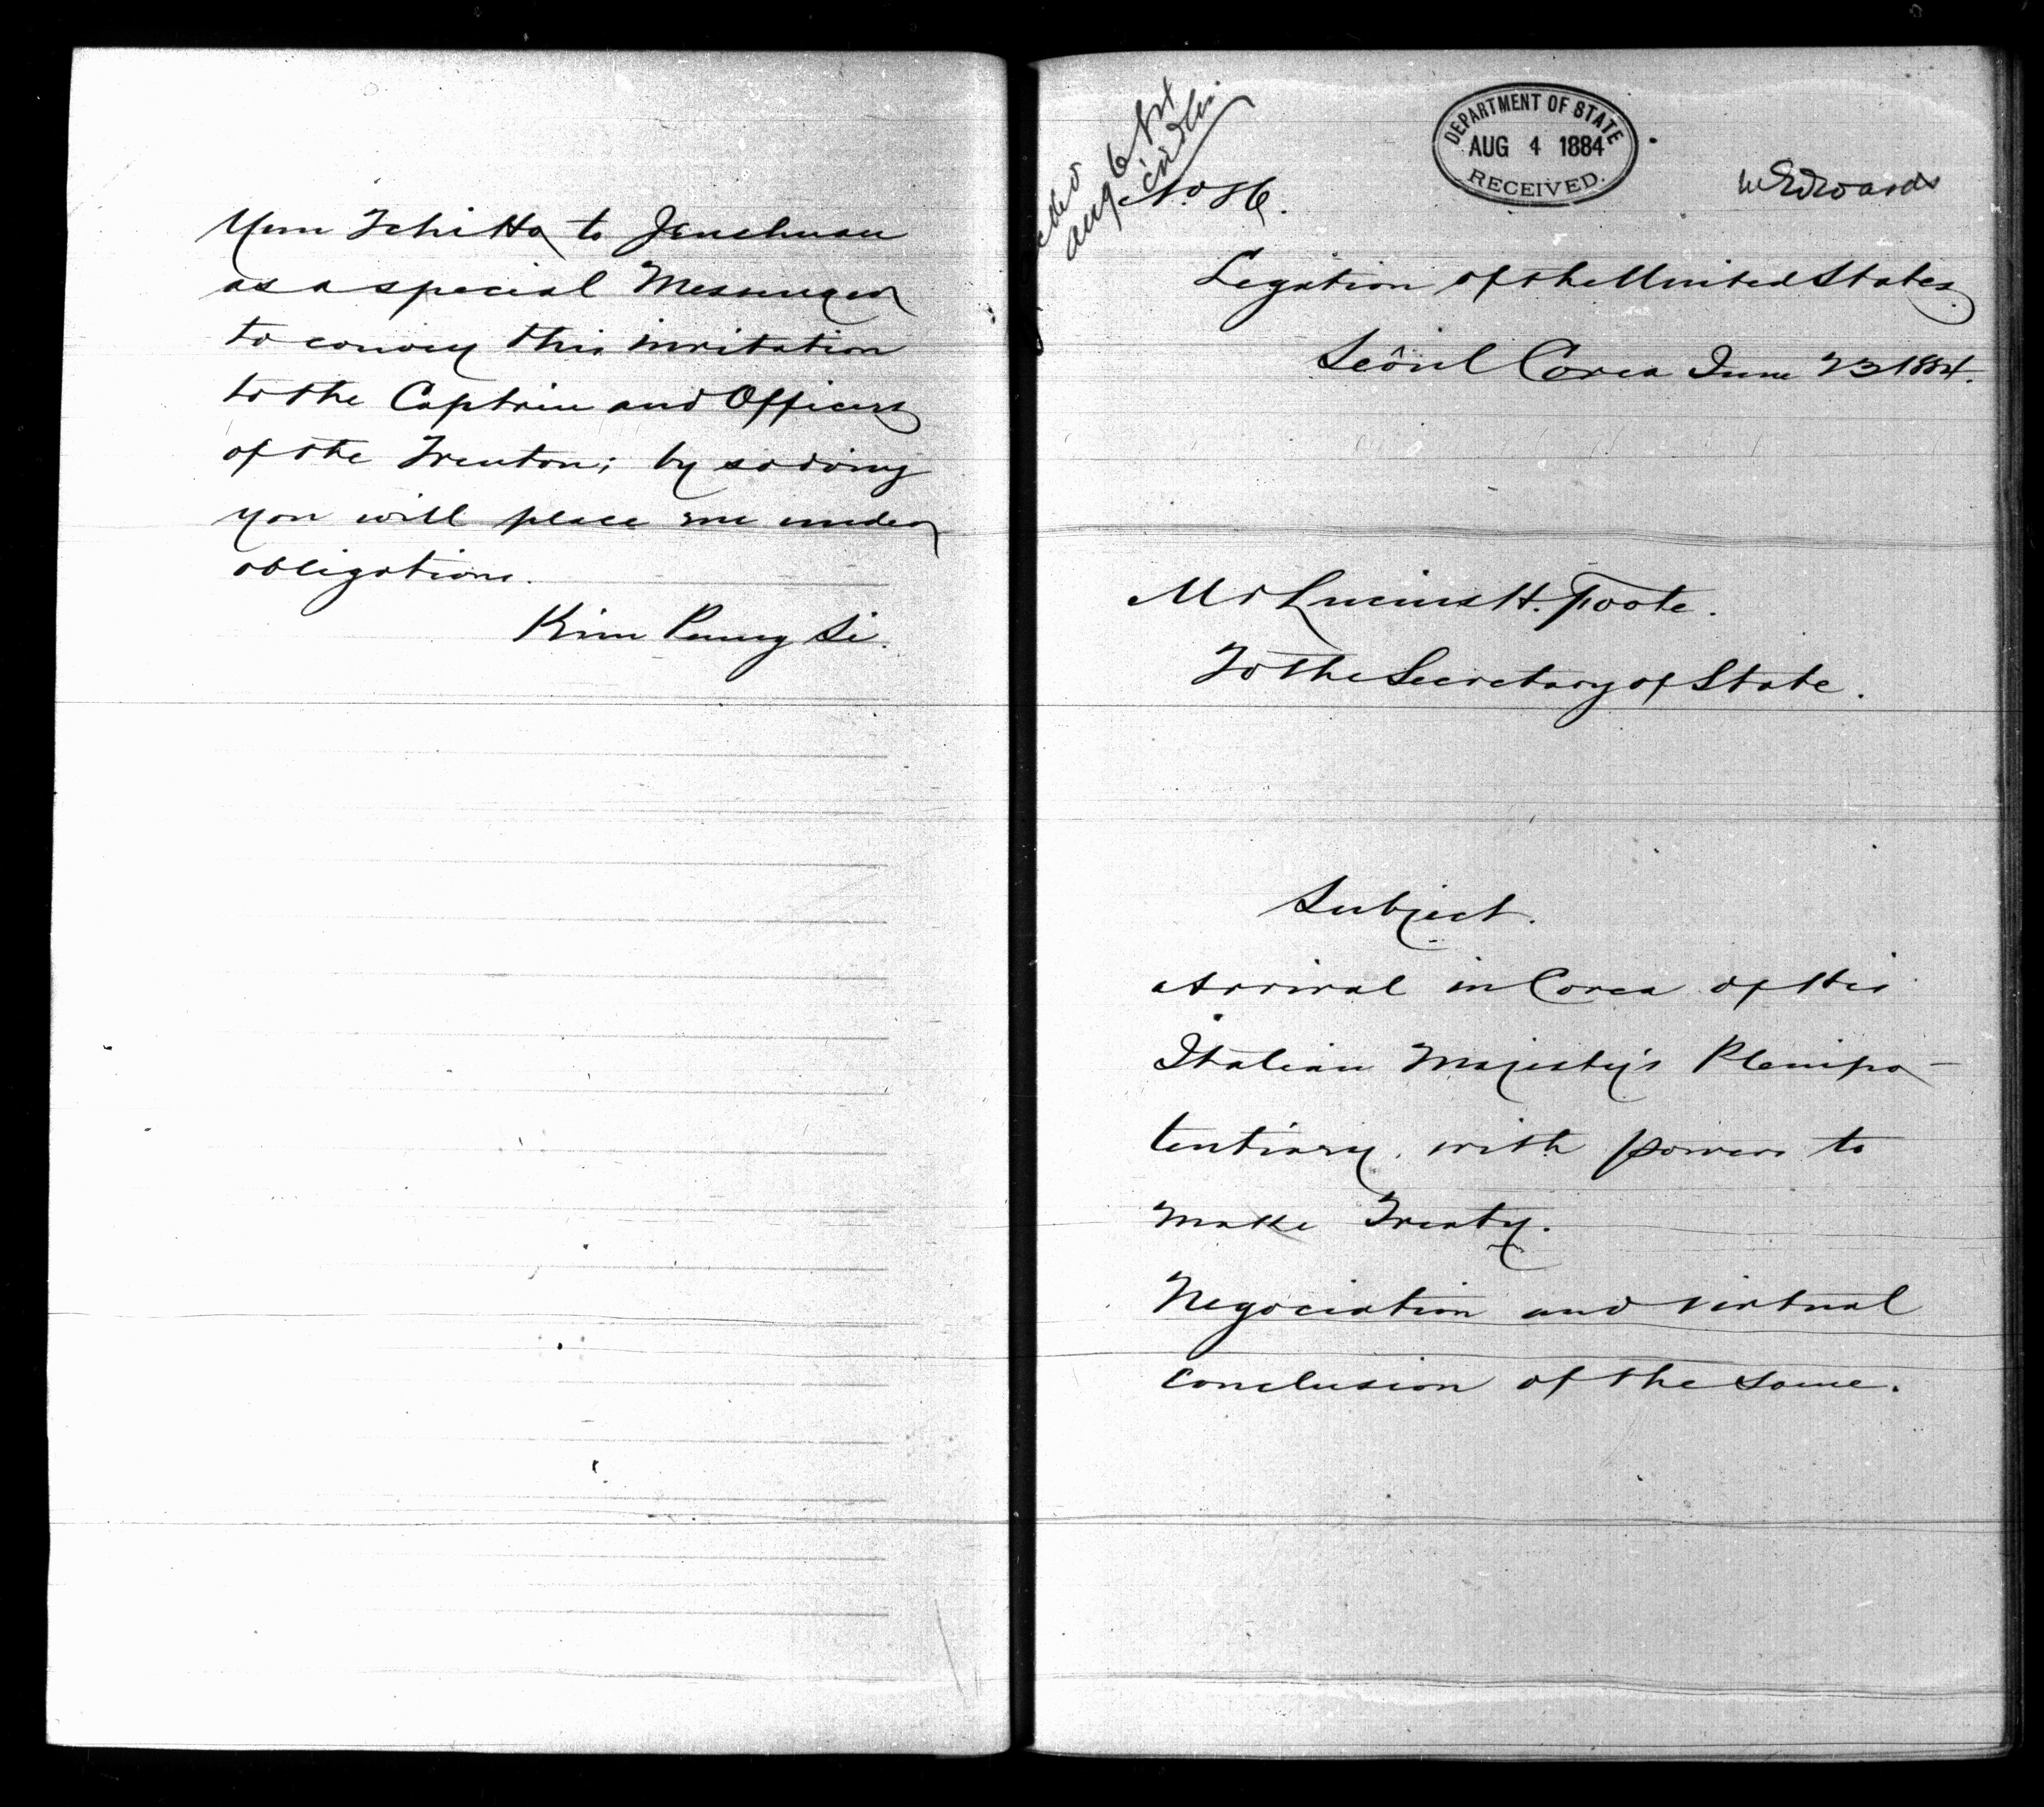 Yun Tchi Ho to Jenchuan
as a special Messenger
to convey this invitation
to the Captain and Officers
of the Trenton; by so doing
you will place me under
obligations.
Kim Pung Si.
Aug 6
DEPARTMENT OF STATE
AUG 4 1884
RECEIVED.
Edwards
Legation of the United States
Seôul Corea June 23 1884.
Mr Lucius H. Foote.
To the Secretary of State.
Subject.
Arrival in Corea of His
Italian Majesty's Plenipo-
tentiary, with powers to
make Treaty.
Negociation and virtual
conclusion of the same.